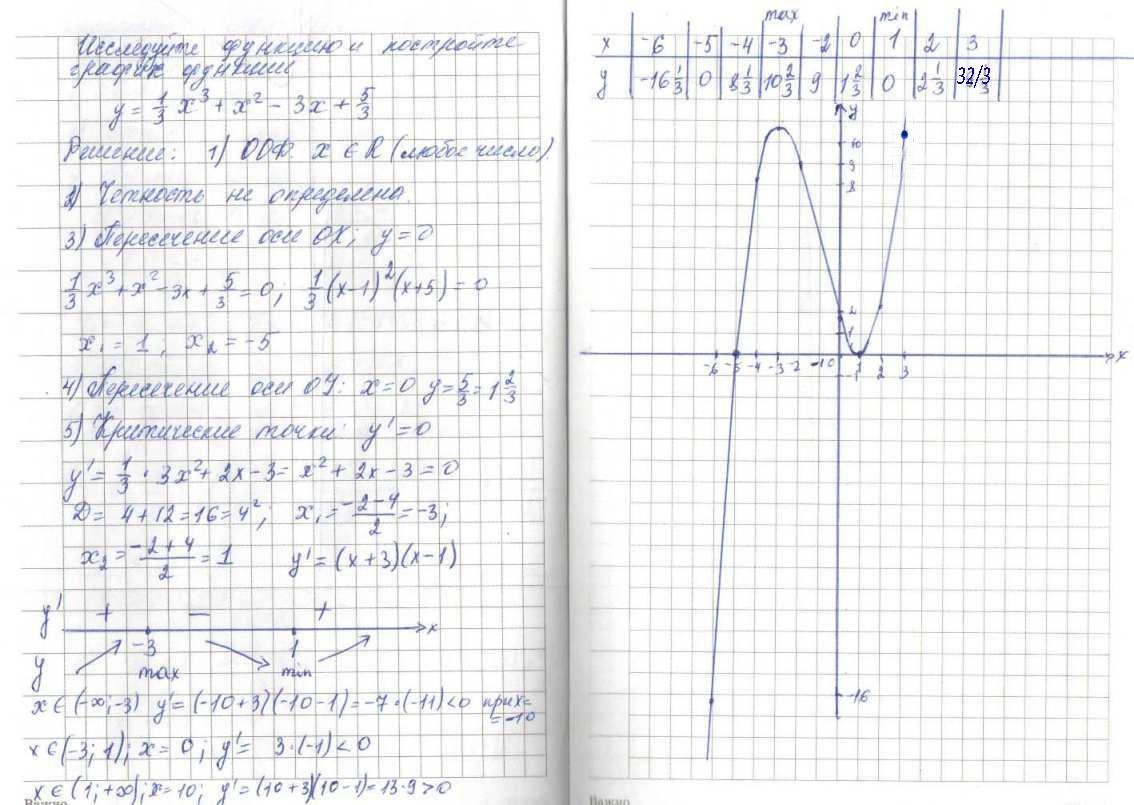 Исследуйте функцию и постройте
график функции
y = 1/3 x³ + x² - 3x + 5/3
Решение: 1) ООФ: x ∈ R (любое число).
2) Четность не определена.
3) Пересечение оси OX; y = 0
1/3 x³ + x² - 3x + 5/3 = 0; 1/3 (x-1)² (x+5) = 0
x₁ = 1, x₂ = -5
4) Пересечение оси OY: x = 0 y = 5/3 = 1 2/3
5) Критические точки: y' = 0
y' = 1/3 · 3x² + 2x - 3 = x² + 2x - 3 = 0
D = 4 + 12 = 16 = 4²; x₁ = (-2-4)/2 = -3;
x₂ = (-2+4)/2 = 1 y' = (x+3)(x-1)
y' + — +
-3 1 x
y max min
x ∈ (-∞; -3) y' = (-10+3)(-10-1) = -7·(-11) < 0 при x =
= -10
x ∈ (-3; 1); x = 0; y' = 3·(-1) < 0
x ∈ (1; +∞); x = 10; y' = (10+3)(10-1) = 13·9 > 0
Важно
max min
x -6 -5 -4 -3 -2 0 1 2 3
y -16 1/3 0 8 1/3 10 2/3 9 1 2/3 0 2 1/3 32/3
y
10
9
8
2
1
-6 -5 -4 -3 -2 -1 0 1 2 3 x
-1
-16
Важно